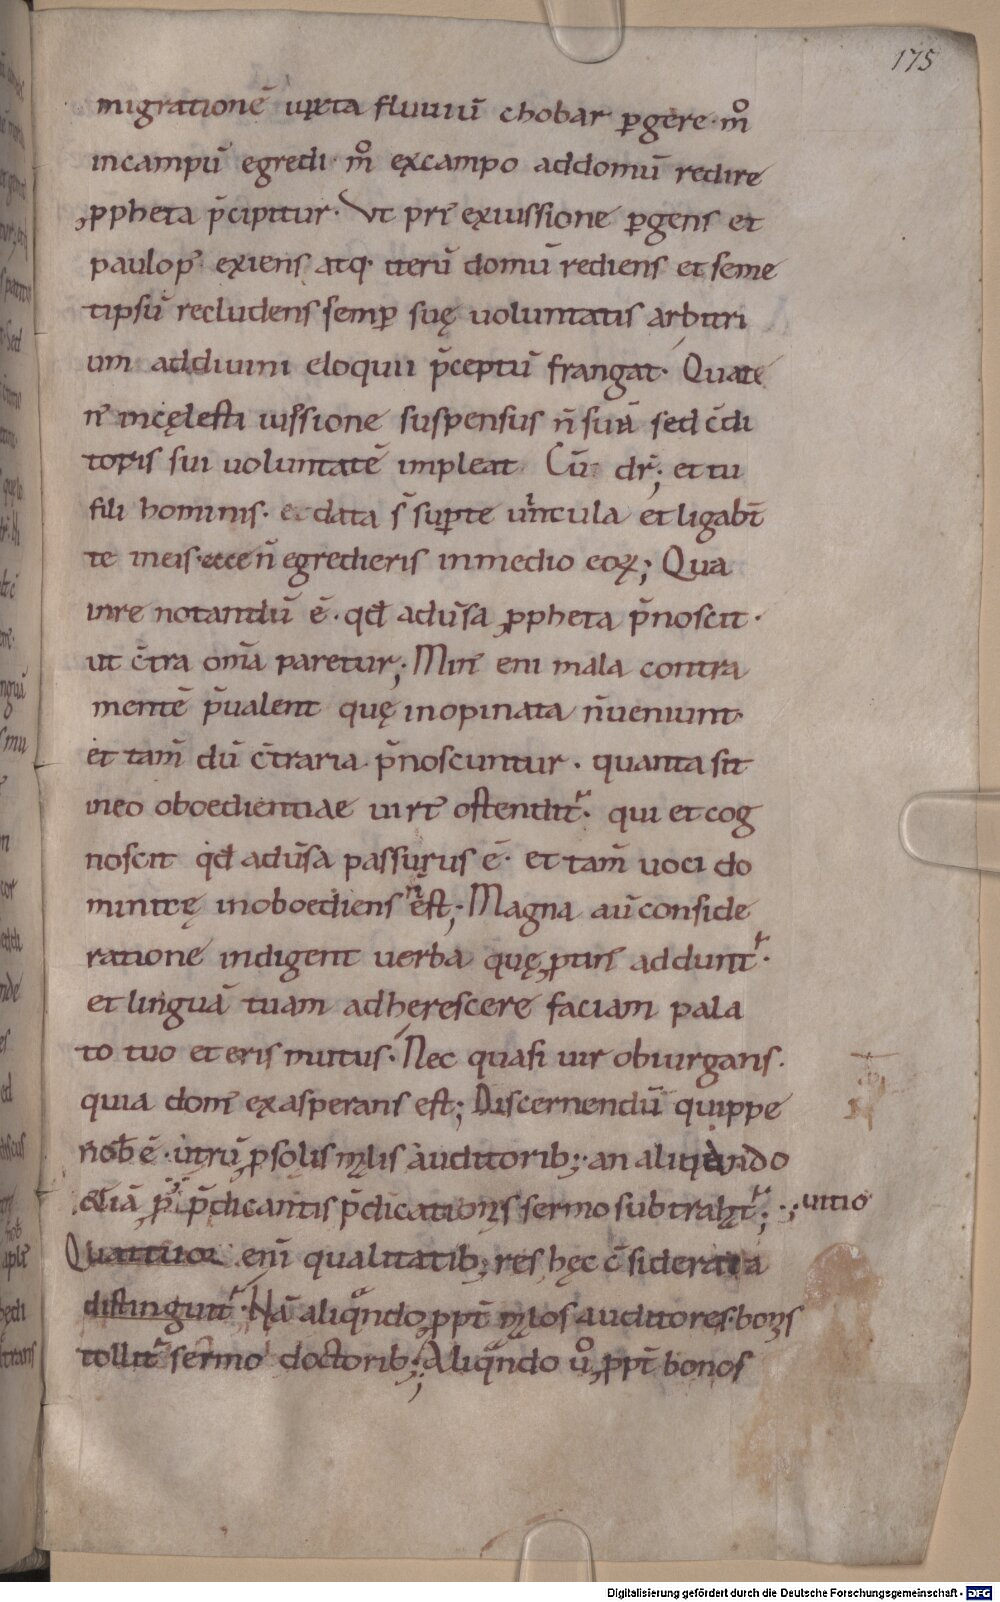 175
migrationē iuxta fluuiū chobar ꝑgere· m̊
incampū egredi· m̊ excampo addomū redire
ꝓpheta p̄cipitur· Ut pri᷒ exuissione ꝑgens et
paulop᷒ exiens atq· iterū domū rediens et seme
tipsū recludens semꝑ suę uoluntatis arbitri
um addiuini eloquii p̄ceptū frangat· Quate
n᷒ incęlesti uissione suspensus n̄ suā sed c̄di
toris sui uoluntatē impleat Cū dr̄; et tu
fili hominis· ecdata s̄ suꝑte uincula et ligabt̄
te ineis· ecce n̄ egredieris inmedio eoꝝ; Qua
inre notandū ē· qđ aduˀsa ꝓpheta p̄noscit·
ut c̄tra om̄a paretur; Min᷒ eni mala contra
mentē p̄ualent quę inopinata n̄ueniunt·
et tam̄ dū c̄traria p̄noscuntur· quanta sit
ineo oboedientiae uirt᷒ ostendit᷑· qui et cog
noscit qđ aduˀsa passurus ē· et tam̄ uoci do
minicę inoboediens n̄ est; Magna aū conside
ratione indigent uerba quę ꝓtin᷒ addunt᷑·
et linguā tuam adherescere faciam pala
to tuo et eris mutus· Nec quasi uir obiurgans·
quia dom᷒ exasperans est; Discernendū quippe
nob̄ ē· utrū ꝓ solis mąlis auditorib;· an aliquando
etiā ꝓ p̄dicantis p̄dicationis sermo subtraht᷑; ·; uitio
Quattuor enī qualitatib; res hęc c̄siderata
distinguit᷑· Nā aliqͣndo ꝓpt̄ mąlos auditores· bonis
tollit᷑ sermo doctorib; Aliqͣndo ů ꝓpt̄ bonos
Digitalisierung gefördert durch die Deutsche Forschungsgemeinschaft - DFG